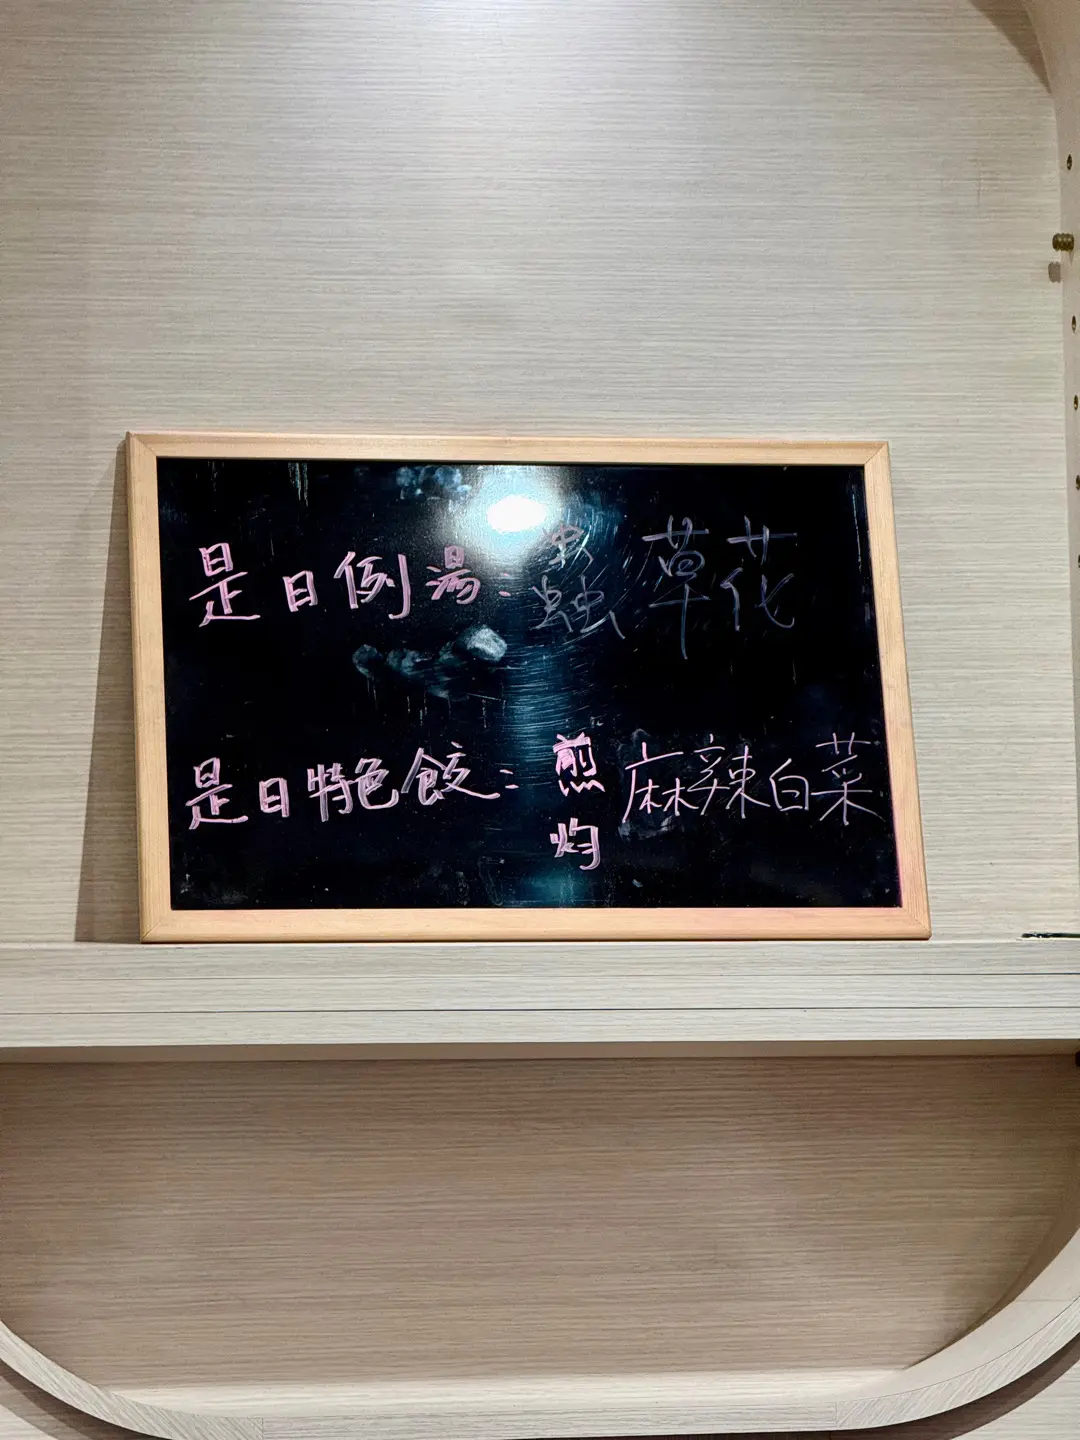 是日例湯：蟲草花
是日特色餃：煎 麻辣白菜
灼